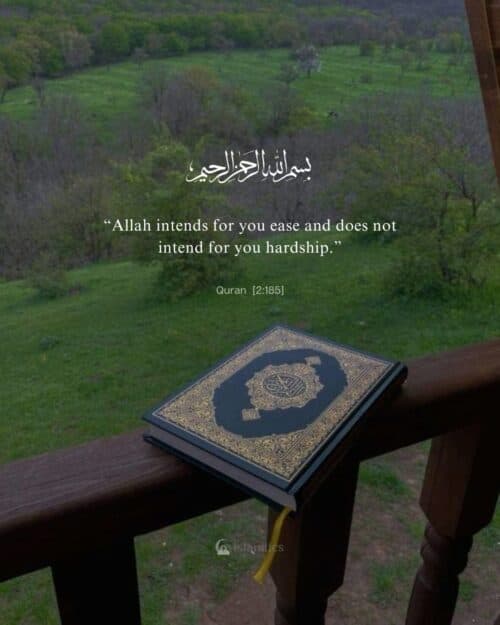 بسم الله الرحمن الرحيم
“Allah intends for you ease and does not
intend for you hardship.”
Quran [2:185]